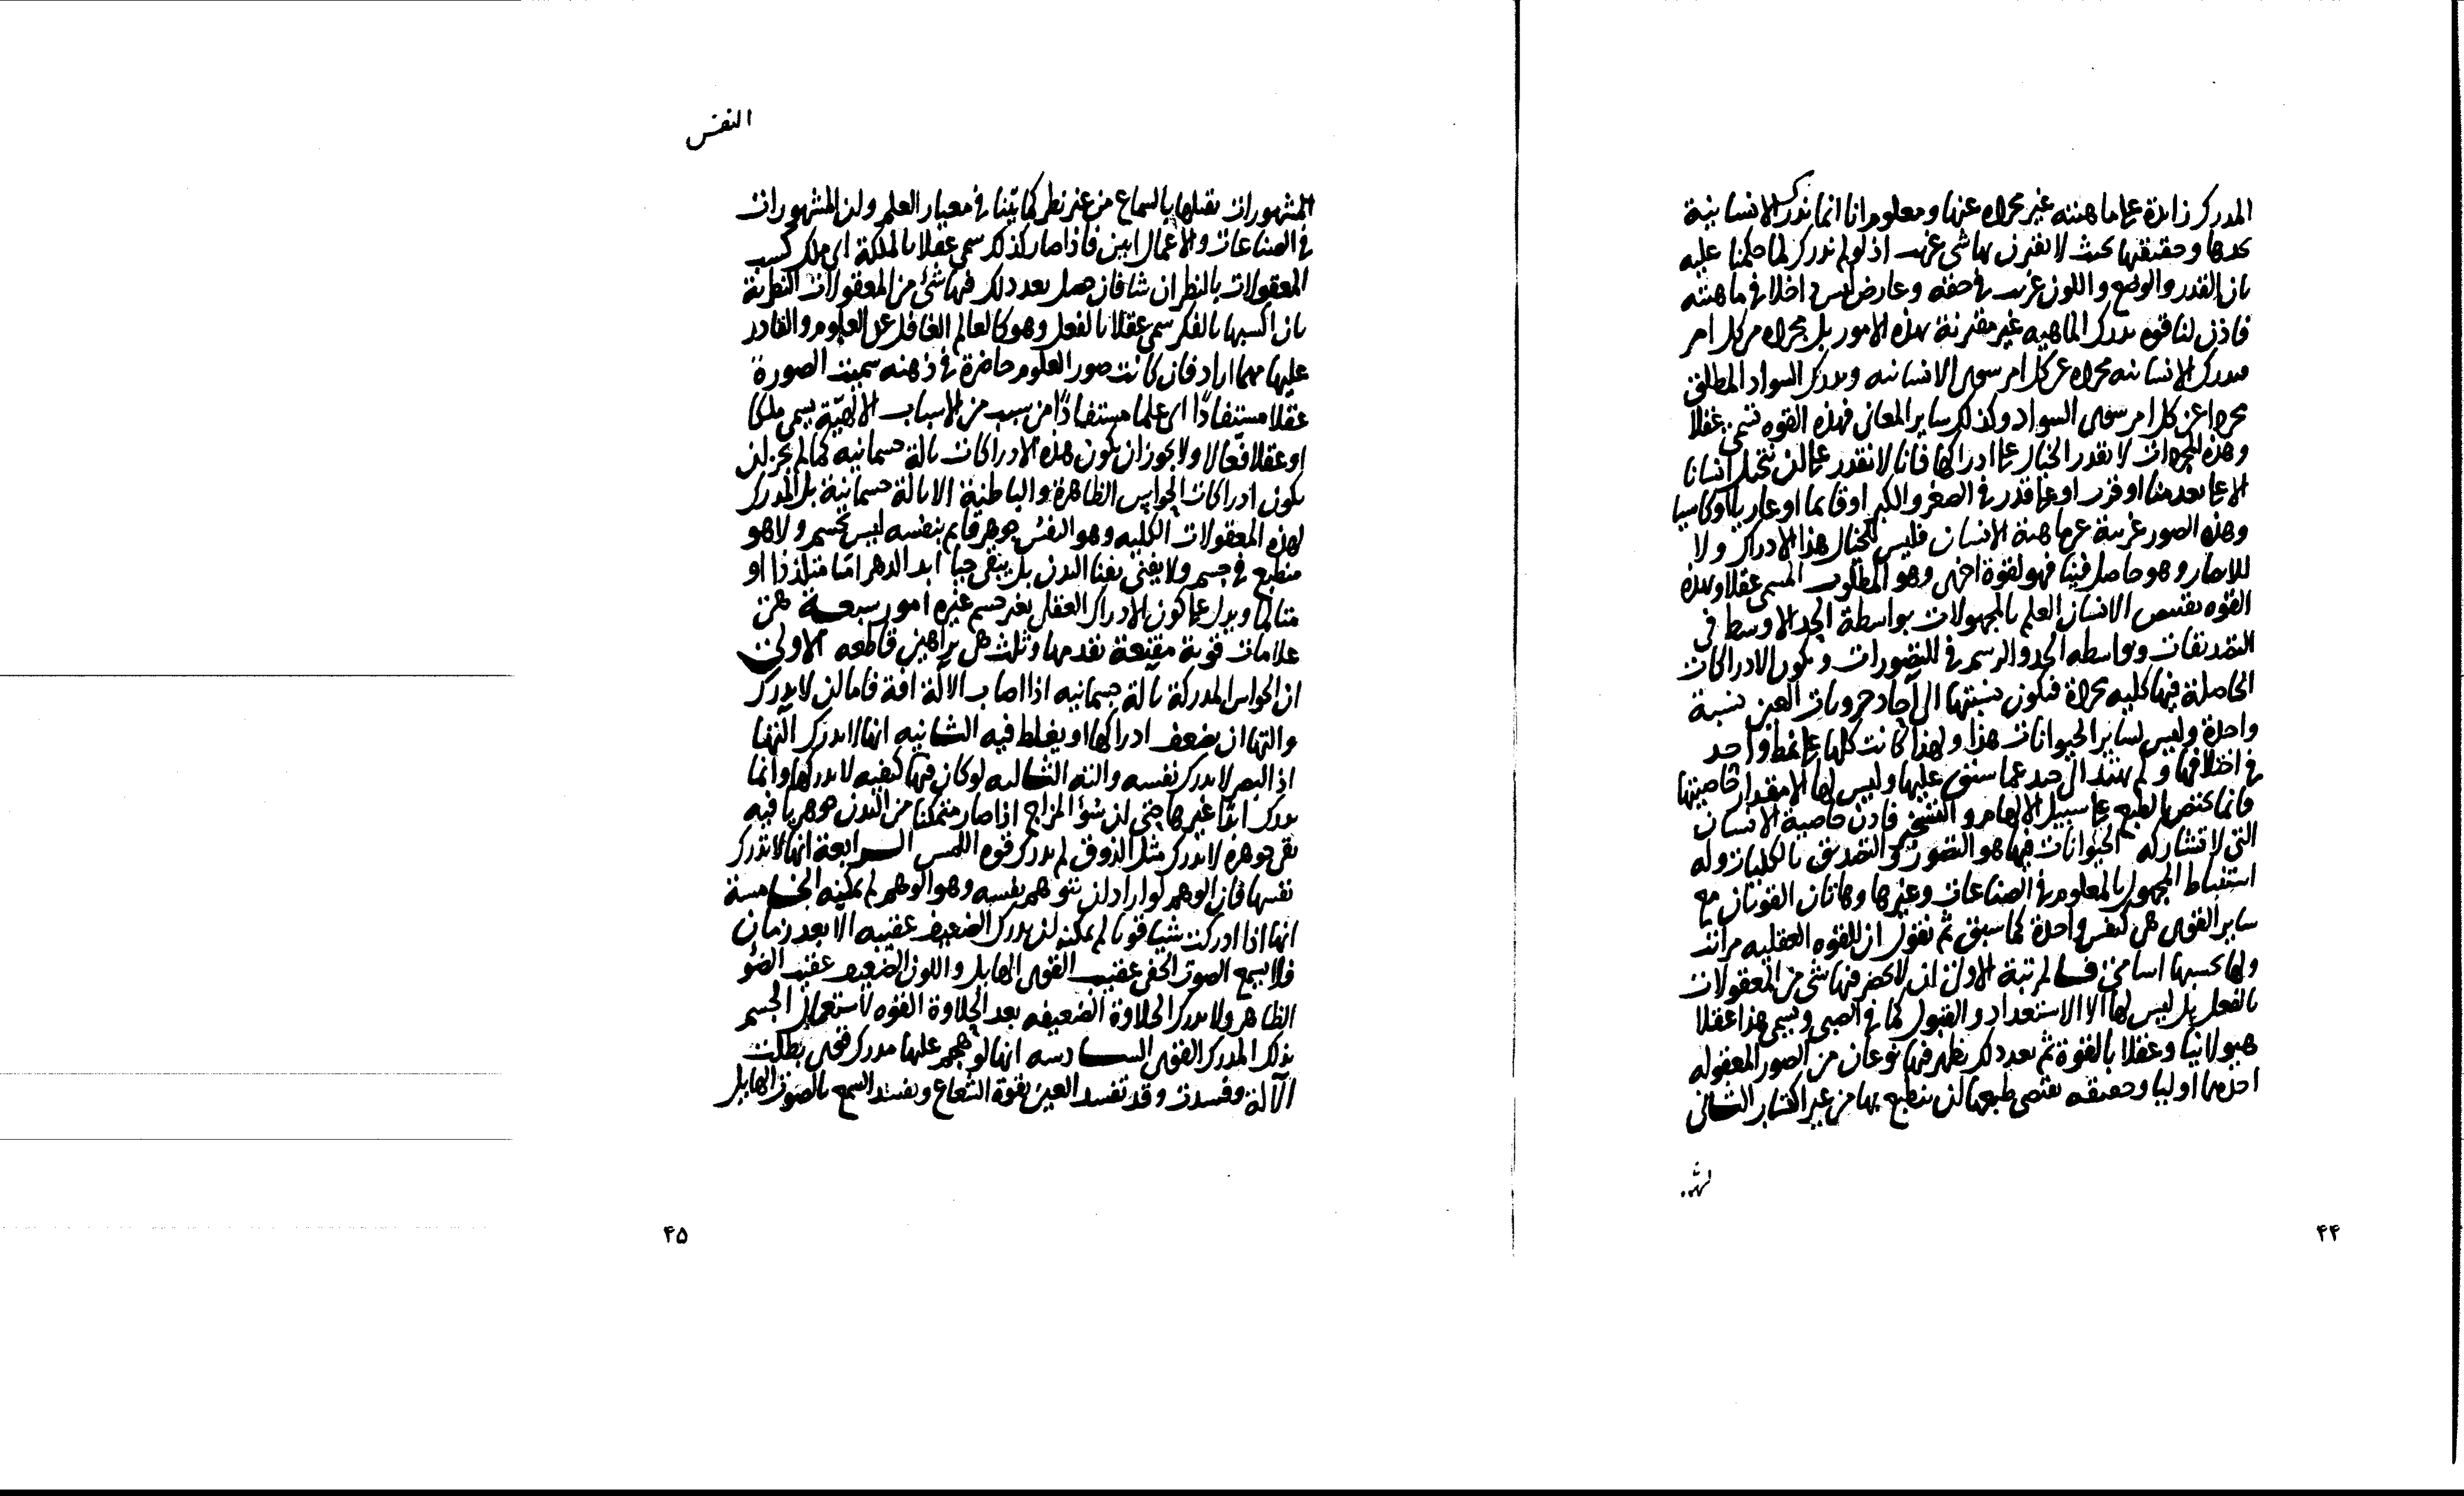 المدرك زايدة على ماهيته غير مجراه عنها ومعلوم انا انما ندرك الانسانية
بحدها وحقيقتها بحيث لا يقترن بها شى غريب اذ لو لم ندرك لما حكمنا عليه
بان القدر والوضع واللون غريب فى حقه وعارض ليس داخلا فى ماهيته
فاذن لنا قوه تدرك الماهيه غير مقترنة بهذه الامور بل مجراه من كل امر
فيدرك الانسانيه مجراه عن كل امر سوى الانسانيه ويدرك السواد المطلق
مجردا عن كل امر سوى السواد وكذلك ساير المعانى فهذه القوه تسمى عقلا
وهذه المجردات لا يقدر الخيال على ادراكها فانا لا نقدر على ان نتخيل انسانا
الا على بعد منا او قرب او على قدر فى الصغر والكبر او قايما او عاريا او كاسيا
وهذه الصور غريبة عن ماهية الانسان فليس للخيال هذا الادراك ولا
للابصار وهو حاصل فينا فهو لقوة اخرى وهو المطلوب المسمى عقلا وبهذه
القوه يقتنص الانسان العلم بالمجهولات بواسطة الحد الاوسط فى
التصديقات وبواسطه الحد والرسم فى التصورات ويكون الادراكات
الحاصلة فيها كليه مجراة فيكون نسبتها الى آحاد جزويات العين نسبة
واحدة وليس لساير الحيوانات هذا ولهذا كانت كلها على نمط واحد
فى اختلافها ولم يهتد الى حيد عما سبق عليها وليس لها الا مقدار خاصيتها
فانما يختص بالطبع على سبيل الالهام والتسخير فاذن خاصية الانسان
التى لا تشاركه الحيوانات فيها هو التصور والتصديق بالكليات وله
استنباط المجهول بالمعلوم فى الصناعات وغيرها وهاتان القوتان مع
ساير القوى هى لنفس واحدة كما سبق ثم نقول ان للقوه العقليه مراتب
ولها بحسبها اسامى فالمرتبة الاولى ان لا يحضر فيها شى من المعقولات
بالفعل بل ليس لها الا الاستعداد والقبول كما فى الصبى ويسمى هذا عقلا
هيولانيا وعقلا بالقوة ثم بعد ذلك يظهر فيها نوعان من الصور المعقوله
احدهما اوليا وحقيقه يقتضى طبعها ان ينطبع بها من غير اكتساب الثانى
٤٤
النفس
المشهورات يقبلها بالسماع من غير نظر كما بينا فى معيار العلم ولان المشهورات
فى الصناعات والاعمال ابين فاذا صار كذلك سمى عقلا بالملكة اى ملك كسب
المعقولات بالنظر ان شا فان حصل بعد ذلك فيها شئ من المعقولات النظرية
بان اكتسبها بالفكر سمى عقلا بالفعل وهو كالعالم الغافل عن العلوم والقادر
عليها مهما اراد فان كانت صور العلوم حاضرة فى ذهنه سميت الصورة
عقلا مستفادًا اى علما مستفادًا من سبب من الاسباب الالهيّة يسمى ملكا
او عقلا فعّالا ولا يجوز ان يكون هذه الادراكات بالة جسمانيه كما لم يجز ان
يكون ادراكات الحواس الظاهرة والباطنة الا بالة جسمانية بل المدرك
لهذه المعقولات الكليه وهو النفس جوهر قايم بنفسه ليس بجسم ولا هو
منطبع فى جسم ولا يفنى بفنا البدن بل يبقى حيا ابد الدهر امّا متلذذا او
متالما ويدل على كون الادراك العقلى بغير جسم عشره امور سبعة هى
علامات قوية مقنعة نقدمها وثلث هى براهين قاطعه الاولى
ان الحواس المدركة بالة جسمانيه اذا اصاب الآلة افة فاما ان لا يدرك
واما ان يضعف ادراكها او يغلط فيه الثانيه انها لا يدرك التها
اذ البصر لا يدرك نفسه والته الثالثه لو كان فيها كيفيه لا يدركها وانما
يدرك ابدا غيرها حتى ان سؤ المزاج اذا صار متمكنا من البدن جوهريا فيه
مثل الذوق لم يدرك قوه اللمس الرابعة انها لا تدرك
نفسها فان الوهم لو اراد ان يتوهم نفسه وهو الوهم لم يمكنه الخامسة
انها اذا ادركت شيا قويا لم يمكنه ان يدرك الضعيف عقيبه الا بعد زمان
فلا يسمع الصوت الخفى عقيب القوى الهايل واللون الضعيف عقيب الضو
الظاهر ولا يدرك الحلاوة الضعيفه بعد الحلاوة القوه لاشتعال الجسم
بذلك المدرك القوى السادسه انها لو هجم عليها مدرك قوى بطلت
الآلة وفسدت وقد تفسد العين بقوة الشعاع ويفسد السمع بالصوت الهايل
٤٥